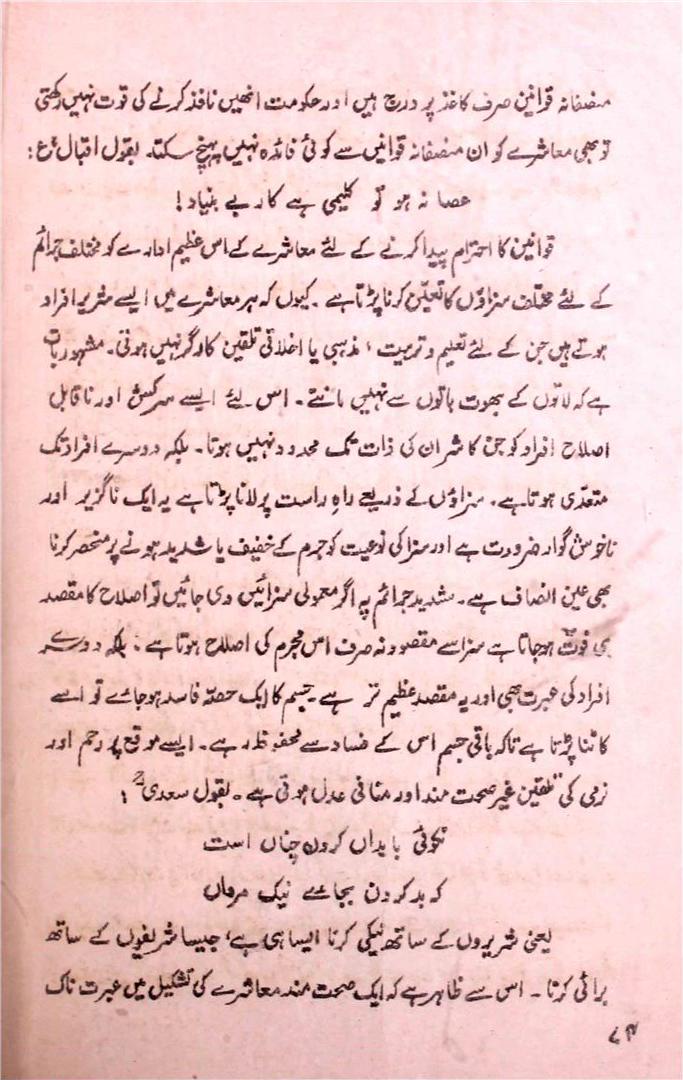 منصفانہ قوانین صرف کاغذ پر درج ہیں اور حکومت انھیں نافذ کرنے کی قوت نہیں رکھتی
تو بھی معاشرے کو ان منصفانہ قوانین سے کوئی فائدہ نہیں پہنچ سکتا۔ بقول اقبال ؒ ع:
عصا نہ ہو تو کلیمی ہے کار بے بنیاد!
قوانین کا احترام پیدا کرنے کے لئے معاشرے کے اس عظیم ادارے کو مختلف جرائم
کے لئے مختلف سزاؤں کا تعیّن کرنا پڑتا ہے۔ کیوں کہ ہر معاشرے میں ایسے شریر افراد
ہوتے ہیں جن کے لئے تعلیم و تربیت، مذہبی یا اخلاقی تلقین کارگر نہیں ہوتی۔ مشہور بات
ہے کہ لاتوں کے بھوت باتوں سے نہیں مانتے۔ اس لئے ایسے سرکش اور ناقابل
اصلاح افراد کو جن کا شر ان کی ذات تک محدود نہیں ہوتا۔ بلکہ دوسرے افراد تک
متعدّی ہوتا ہے۔ سزاؤں کے ذریعے راہِ راست پر لانا پڑتا ہے یہ ایک ناگزیر اور
ناخوش گوار ضرورت ہے اور سزا کی نوعیت کو جرم کے خفیف یا شدید ہونے پر منحصر کرنا
بھی عین انصاف ہے۔ شدید جرائم پہ اگر معمولی سزائیں دی جائیں تو اصلاح کا مقصد
ہی فوت ہوجاتا ہے سزا سے مقصود نہ صرف اس مجرم کی اصلاح ہوتا ہے؛ بلکہ دوسرے
افراد کی عبرت بھی اور یہ مقصد عظیم تر ہے۔ جسم کا ایک حصّہ فاسد ہوجائے تو اسے
کاٹنا پڑتا ہے تاکہ باقی جسم اس کے فساد سے محفوظ رہے۔ ایسے موقع پر رحم اور
نرمی کی تلقین غیر صحت مند اور منافی عدل ہوتی ہے۔ بقول سعدیؒ:
نکوئی بایداں کردن چناں است
کہ بد کردن بجائے نیک مرداں
یعنی شریروں کے ساتھ نیکی کرنا ایسا ہی ہے، جیسا شریفوں کے ساتھ
برائی کرنا۔ اس سے ظاہر ہے کہ ایک صحت مند معاشرے کی تشکیل میں عبرت ناک